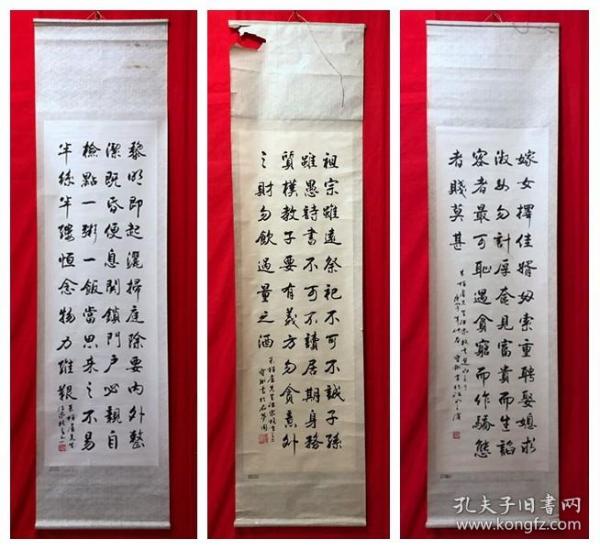 黎明即起灑掃庭除要内外整
潔既昏便息関鎖門戶必親自
檢點一粥一飯當思來之不易
半絲半縷恒念物力維艱
朱柏廬先生
治家格言之一
祖宗雖遠祭祀不可不誠子孫
雖愚詩書不可不讀居期身務
質樸教子要有義方勿貪意外
之財勿飲過量之酒
朱柏廬先生治家格言之
嫁女擇佳婿毋索重聘娶媳求
淑女勿計厚奩見富貴而生諂
容者最可恥遇貧窮而作驕態
者賤莫甚
朱柏廬先生治家格言
孔夫子旧书网
www.kongfz.com